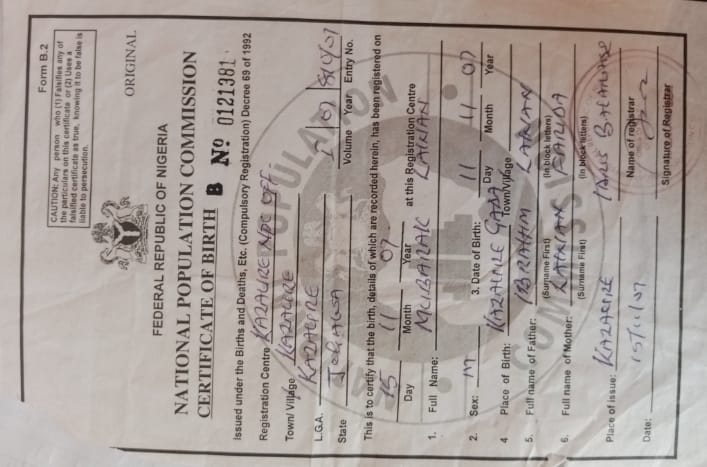 Form B.2
CAUTION: Any person who (1) Falsifies any of
the particulars on this certificate or (2) Uses a
falsified certificate as true, knowing it to be false is
liable to persecution.
ORIGINAL
FEDERAL REPUBLIC OF NIGERIA
NATIONAL POPULATION COMMISSION
CERTIFICATE OF BIRTH B Nº 0121381
Issued under the Births and Deaths, Etc. (Compulsory Registration) Decree 69 of 1992
Registration Centre KAZAURE NPC OFF.
Town/ Village KAZAURE
L.G.A. KAZAURE
State JIGAWA Volume Year 07 Entry No.
This is to certify that the birth, details of which are recorded herein, has been registered on
15 11 07
Day Month Year at this Registration Centre
1. Full Name: MUBARAK
2. Sex: M 3. Date of Birth: 11 11 07
Day Month Year
4 Place of Birth: KAZAURE
Town/Village
5. Full name of Father: IBRAHIM
(Surname First) (In block letters)
6. Full name of Mother:
(Surname First) (In block letters)
Place of issue: KAZAURE
Name of registrar
Date: 15/11/07
Signature of Registrar
NATIONAL POPULATION COMMISSION